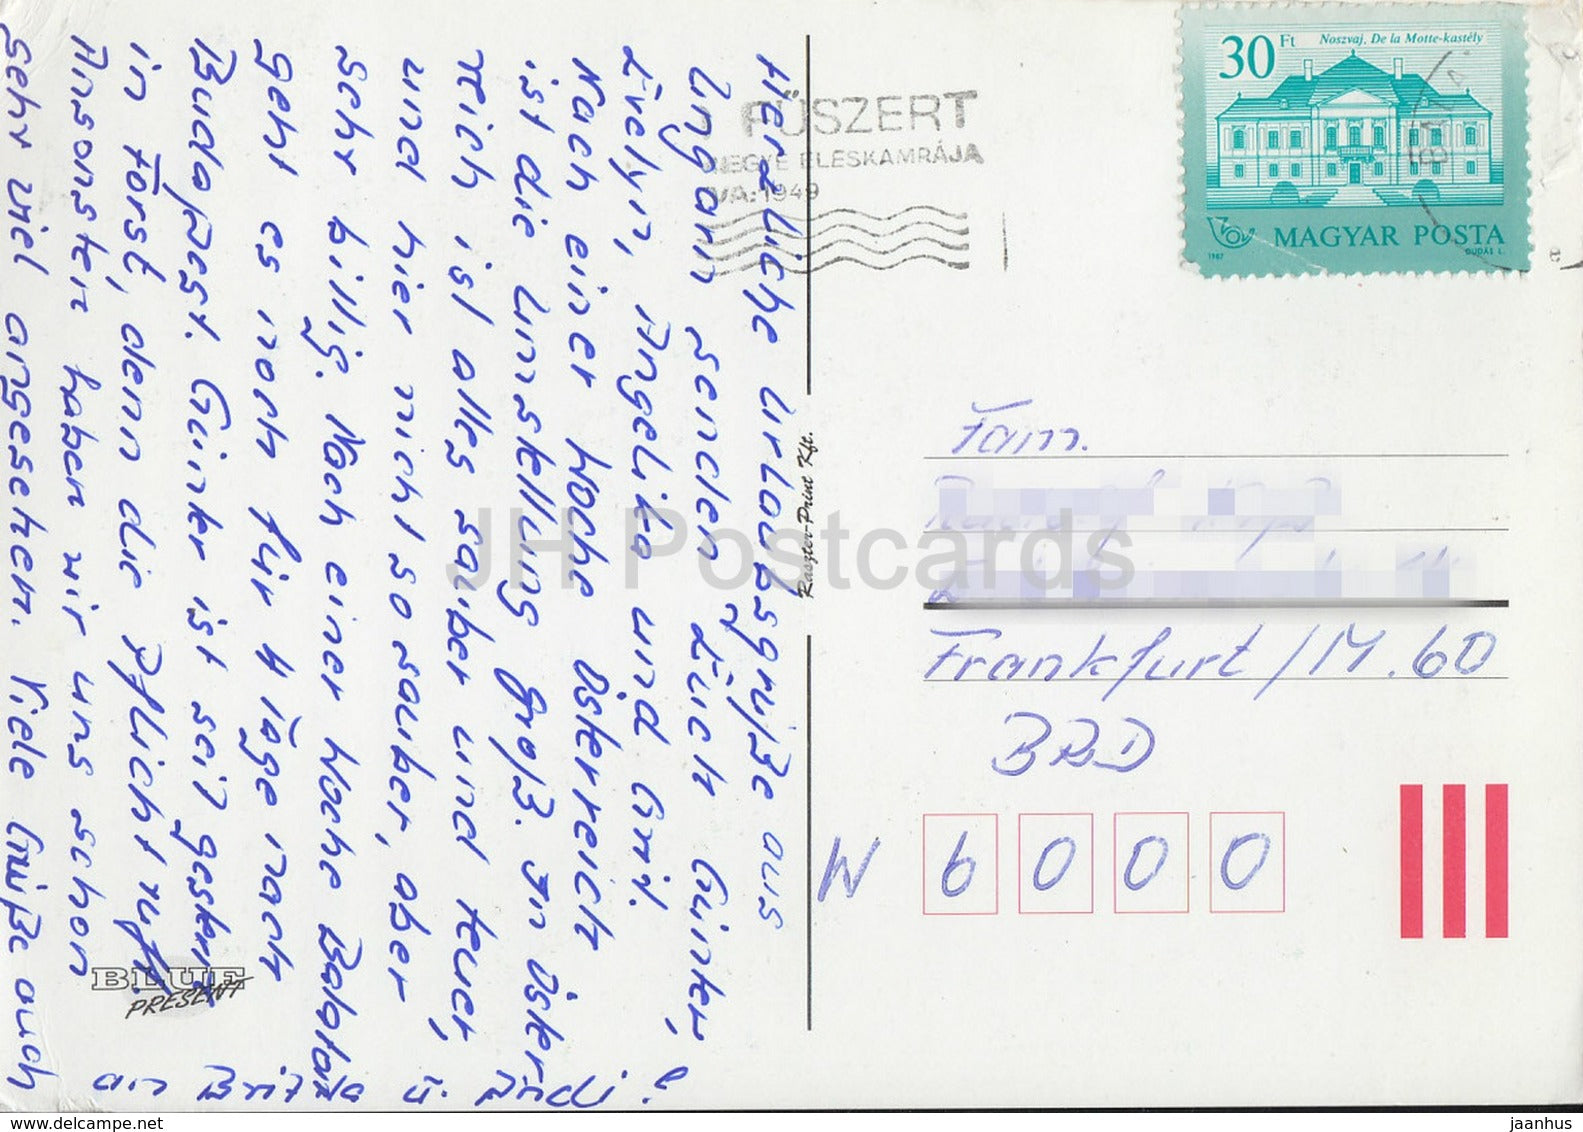 Herzliche Urlaubsgrüße aus
Ungarn senden Euch Günter,
Evelyn, Angelika und Gril.
Nach einer Woche Österreich
ist die Umstellung groß. In Öster-
reich ist alles sauber und teuer,
und hier nicht so sauber, aber
sehr billig. Nach einer Woche Balaton
geht es noch für 4 Tage nach
Budapest. Günter ist seit gestern
in Form, denn die Pflicht ruft.
Ansonsten haben wir uns schon
sehr viel angesehen. Viele Grüße auch
an Britta u. Rudi
BLUE
PRESENT
Raszter-Print Kft.
FŰSZERT
MEGYE ÉLÉSKAMRÁJA
1949
30 Ft
Noszvaj, De la Motte-kastély
MAGYAR POSTA
1987
DUDÁS L.
Fam.
Frankfurt/M. 60
BRD
W 6 0 0 0
JH Postcards
www.delcampe.net
jaanhus